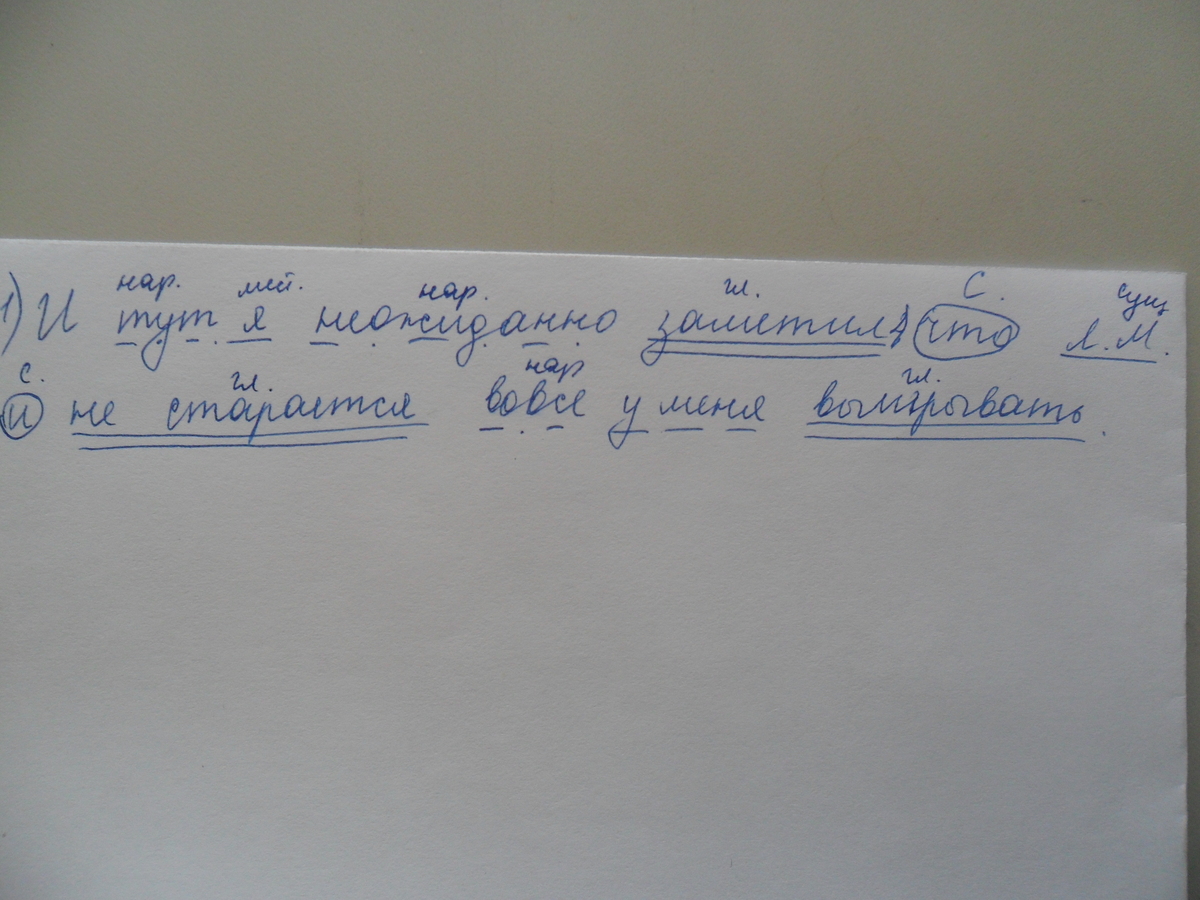 нар. мест. нар. гл. С. сущ
1) И тут я неожиданно заметил, что Л.М.
с. гл. нар гл.
и не старается вовсе у меня выигрывать.